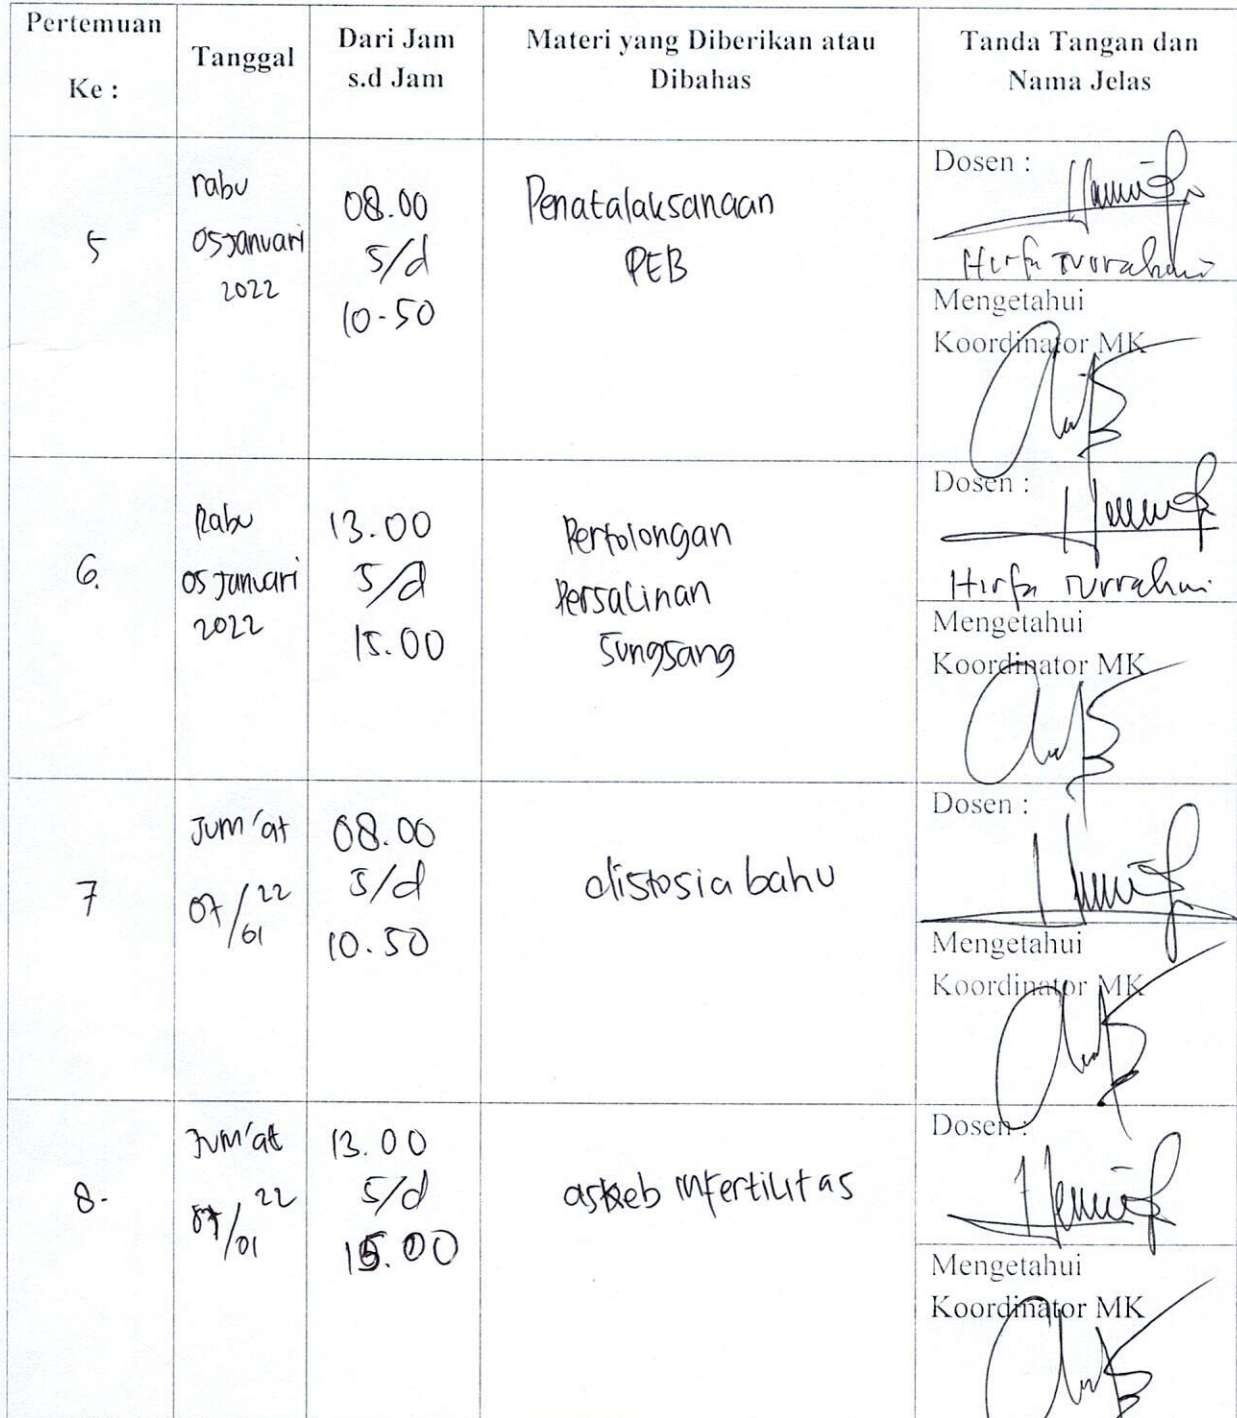 Pertemuan
Ke :
Tanggal
Dari Jam
s.d Jam
Materi yang Diberikan atau
Dibahas
Tanda Tangan dan
Nama Jelas
5
rabu
05 Januari
2022
08.00
s/d
10-50
Penatalaksanaan
PEB
Dosen :
Hirfa
Mengetahui
Koordinator MK
6.
Rabu
05 Januari
2022
13.00
s/d
15.00
Pertolongan
Persalinan
Sungsang
Dosen :
Hirfa
Mengetahui
Koordinator MK
7
Jum'at
07/22
/01
08.00
s/d
10.50
distosia bahu
Dosen :
Mengetahui
Koordinator MK
8.
Jum'at
07/22
/01
13.00
s/d
15.00
askeb infertilitas
Dosen :
Mengetahui
Koordinator MK